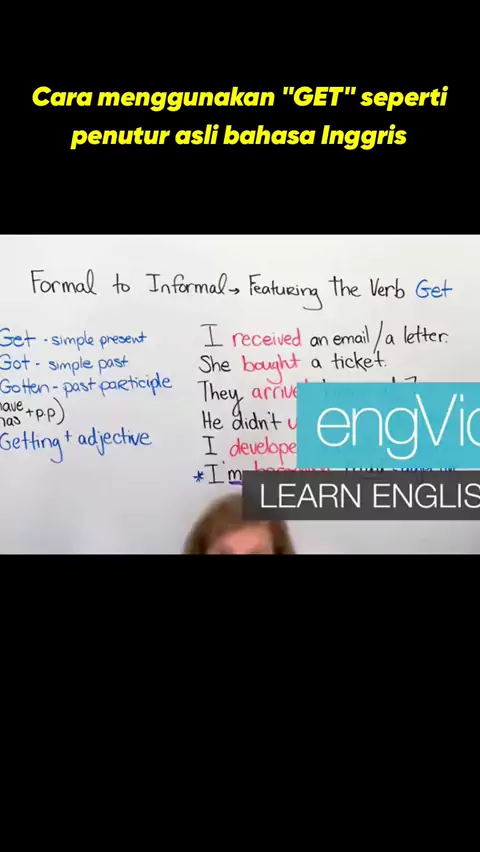 Cara menggunakan "GET" seperti
penutur asli bahasa Inggris
Formal to Informal → Featuring the Verb Get
Get - simple present
Got - simple past
Gotten - past participle
have
has + p.p)
Getting + adjective
I received an email/a letter.
She bought a ticket.
They arrive
He didn't
I develope
* I'm
engVid
LEARN ENGLIS